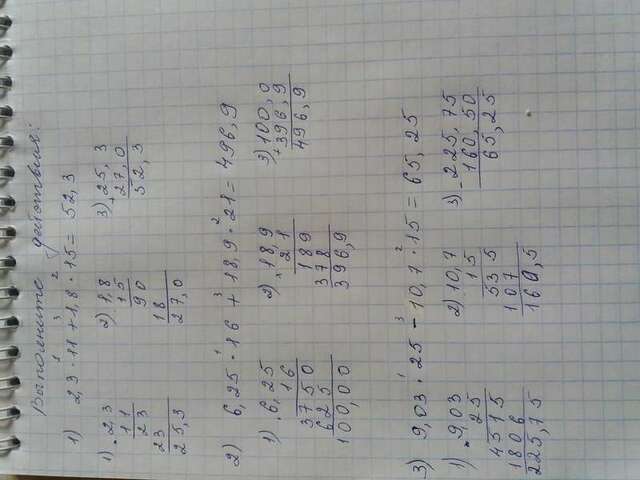 Выполните действия:
1) 2,3 · 11 + 1,8 · 15 = 52,3
1 3 2
1) 2,3 2) 1,8 3) 25,3
· 11 15 + 27,0
23 90 52,3
23 18
25,3 27,0
2) 6,25 · 16 + 18,9 · 21 = 496,9
1 3 2
1) 6,25 2) 18,9 3) 100,0
· 16 × 21 + 396,9
3750 189 496,9
625 378
100,00 396,9
3) 9,03 · 25 - 10,7 · 15 = 65,25
1 3 2
1) 9,03 2) 10,7 3) 225,75
· 25 15 - 160,50
4515 535 65,25
1806 107
225,75 160,5